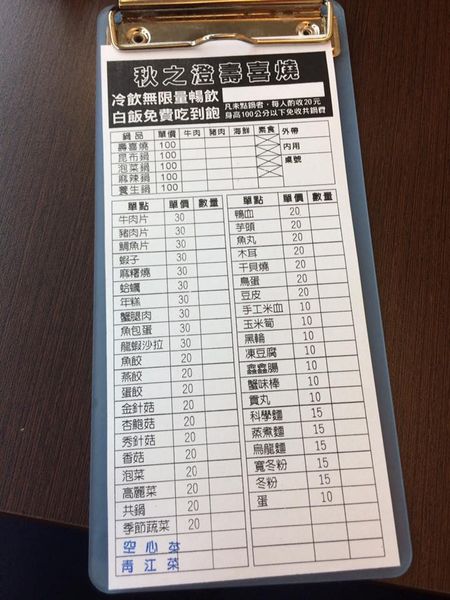 秋之澄壽喜燒
冷飲無限量暢飲
白飯免費吃到飽
凡未點鍋者，每人酌收20元
身高100公分以下免收共鍋費
鍋品 單價 牛肉 豬肉 海鮮 素食 外帶
壽喜燒 100 內用
昆布鍋 100 桌號
泡菜鍋 100
麻辣鍋 100
養生鍋 100
單點 單價 數量
牛肉片 30
豬肉片 30
鯛魚片 30
蝦子 30
麻糬燒 30
蛤蠣 30
年糕 30
蟹腿肉 30
魚包蛋 30
龍蝦沙拉 30
魚餃 20
燕餃 20
蛋餃 20
金針菇 20
杏鮑菇 20
秀針菇 20
香菇 20
泡菜 20
高麗菜 20
共鍋 20
季節蔬菜 20
空心菜
青江菜
單點 單價 數量
鴨血 20
芋頭 20
魚丸 20
木耳 20
干貝燒 20
鳥蛋 20
豆皮 20
手工米血 10
玉米筍 10
黑輪 10
凍豆腐 10
鑫鑫腸 10
蟹味棒 10
貢丸 10
科學麵 15
蒸煮麵 15
烏龍麵 15
寬冬粉 15
冬粉 15
蛋 10